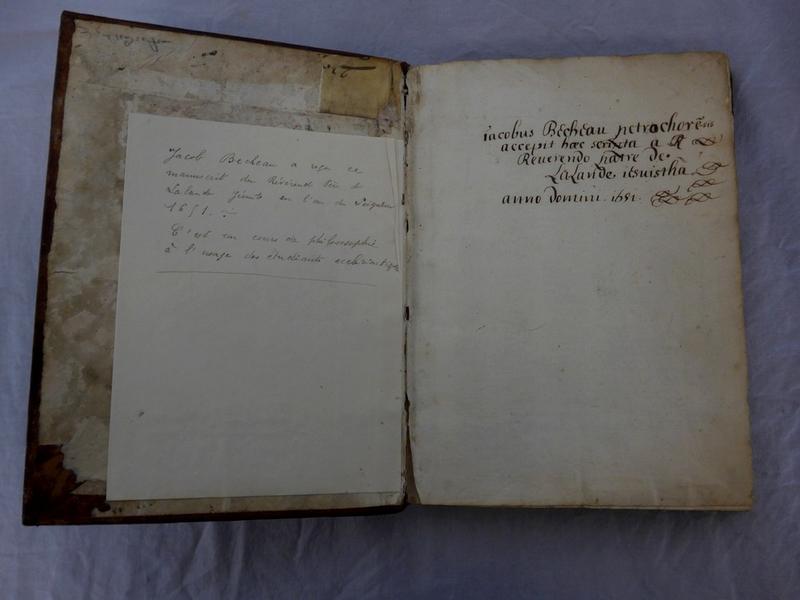 Jacob Becheau a reçu ce
manuscrit du Révérend Père de
Lalande Jésuite en l'an du Seigneur
1651.
C'est un cours de philosophie
à l'usage des étudiants ecclésiastiques
iacobus Becheau petrochorēsis
accepit hæc scripta a R
Reuerendo patre de
LaLande iesuistha
anno domini 1651.